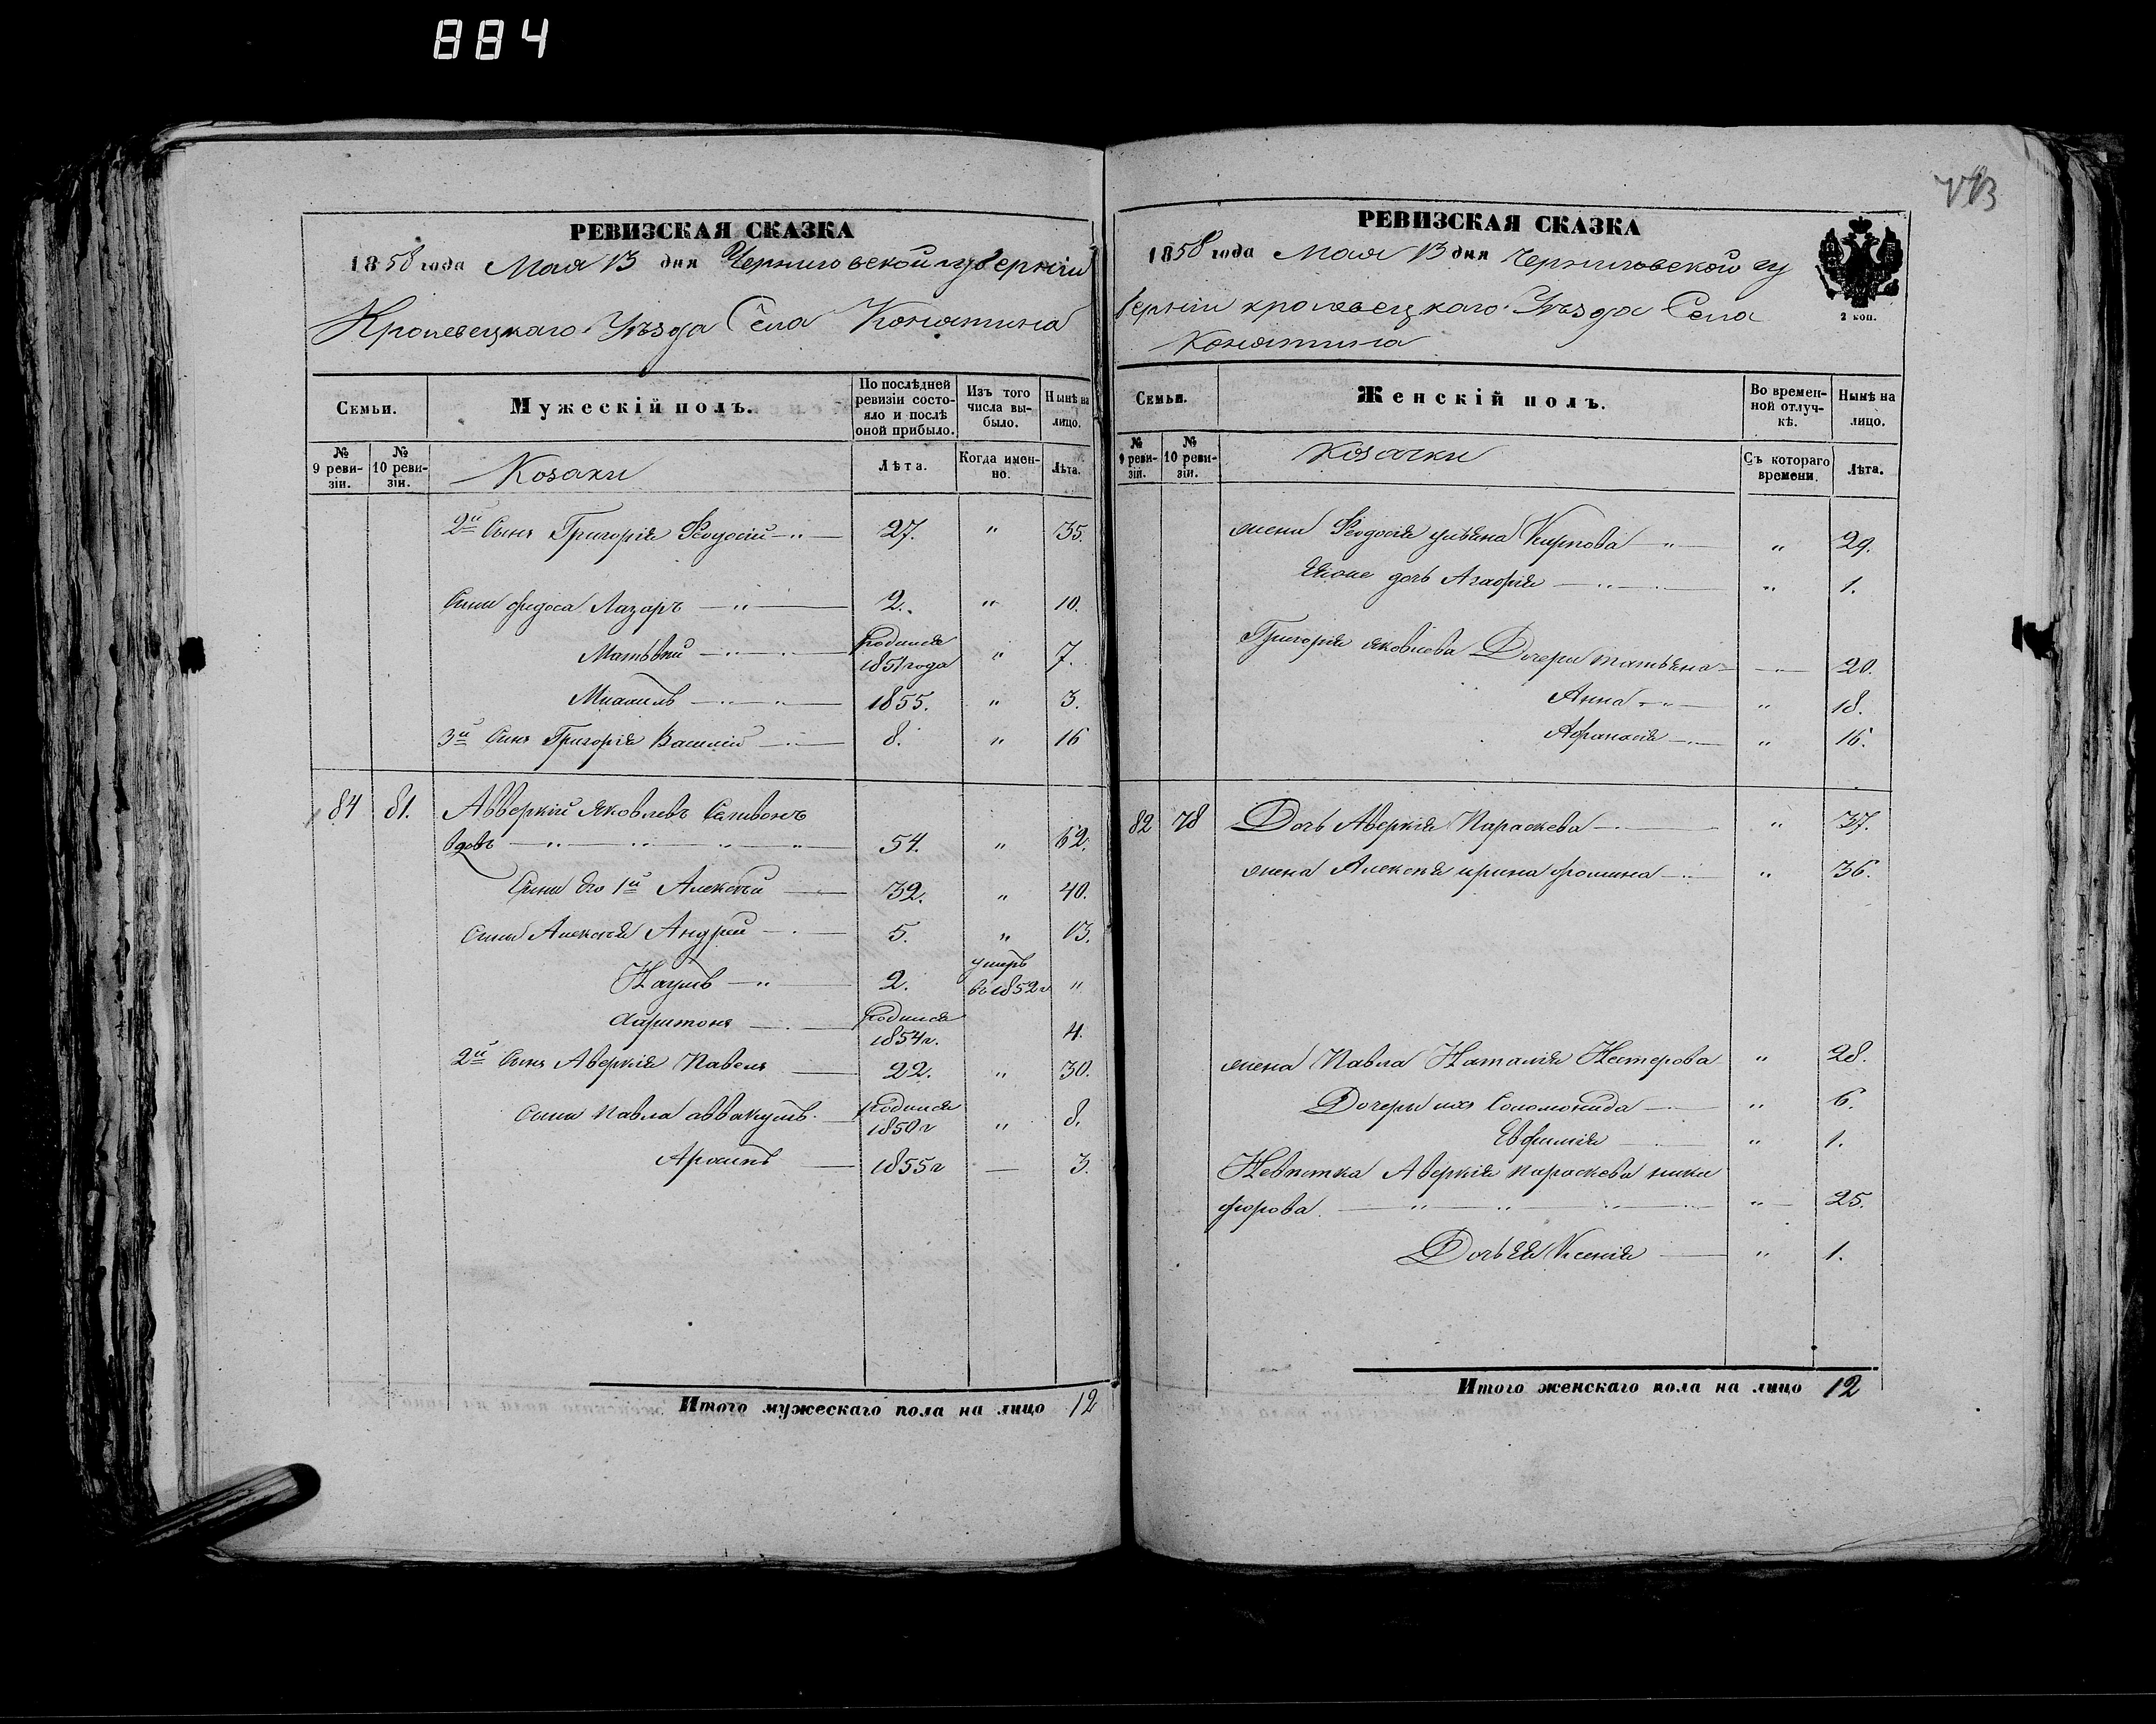 884
РЕВИЗСКАЯ СКАЗКА
1858 года Мая 13 дня Черниговской губерніи
Кролевецкаго Уѣзда Села Конятина
Семьи.
Мужескій полъ.
По послѣдней ревизіи состояло и послѣ оной прибыло.
Изъ того числа выбыло.
Нынѣ на лицо.
№ 9 ревизіи.
№ 10 ревизіи.
Козаки
Лѣта.
Когда именно.
Лѣта.
2й Сынъ Григорія Феодосій 27. " 35.
Сыны Федоса Лазаръ 2. " 10.
Матвѣй Родился 1851 года " 7.
Михаилъ 1855. " 3.
3й Сынъ Григорія Василій 8. " 16
84 81. Авверкій Яковлевъ Селивонъ
вдовъ 54. " 62.
Сыны Его 1й Алексѣй 32. " 40.
Сыны Алексѣя Андрей 5. " 13.
Наумъ 2. умеръ въ 1852 г "
Харитонъ Родился 1854 г. 4.
2й Сынъ Аверкія Павелъ 22. " 30.
Сыны Павла Аввакумъ Родился 1850 г " 8.
Архипъ 1855 г — 3.
Итого мужескаго пола на лицо 12
РЕВИЗСКАЯ СКАЗКА
1858 года Мая 13 дня Черниговской гу
берніи кролевецкаго Уѣзда Села
Конятина
2 коп.
Семьи.
Женскій полъ.
Во временной отлучкѣ.
Нынѣ на лицо.
№ 9 ревизіи.
№ 10 ревизіи.
Козачки
Съ котораго времени.
Лѣта.
жена Феодосія ульяна Карпова " 29.
дочь Агафія " 1.
Григорія яковлева Дочери татьяна — 20.
Анна " 18.
Афанасія " 16.
82 78 Дочь Аверкія Параскева " 37.
жена Алексѣя ирина фомина " 36.
жена Павла Наталія Нестерова " 28.
Дочери ихъ Соломонида " 6.
Евфимія " 1.
Невѣстка Аверкія параскева ники
форова " 25.
Дочь Ея Ксенія " 1.
Итого женскаго пола на лицо 12